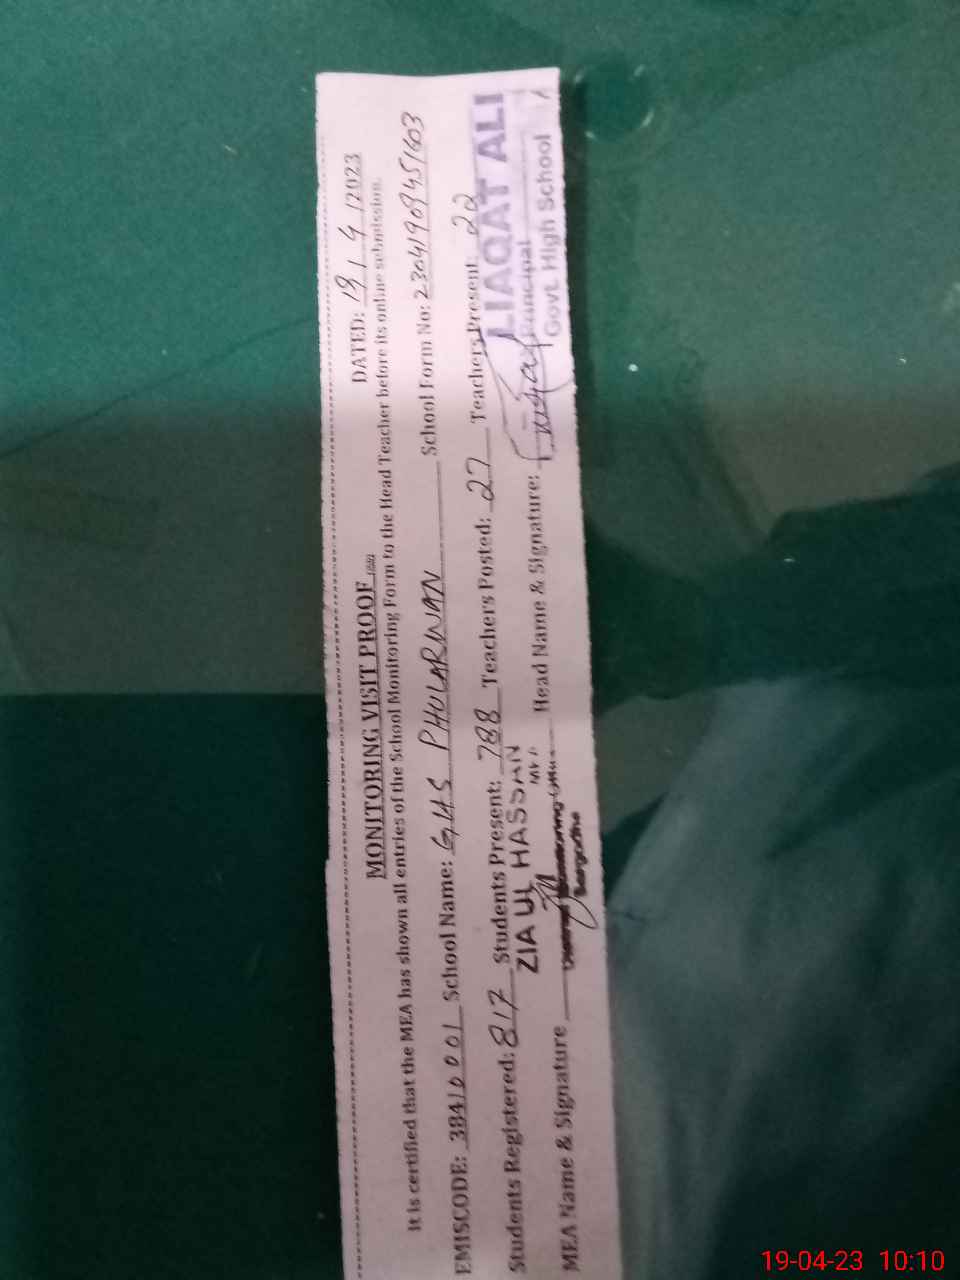 DATED: 19/4/2023
MONITORING VISIT PROOF
It is certified that the MEA has shown all entries of the School Monitoring Form to the Head Teacher before its online submission.
EMISCODE: 38410001 School Name: GHS PHULARWAN School Form No: 23041909451603
Students Registered: 817 Students Present: 788 Teachers Posted: 27 Teachers Present: 22
ZIA UL HASSAN
MEA
Sargodha
MEA Name & Signature Head Name & Signature:
LIAQAT ALI
Principal
Govt. High School
19-04-23 10:10